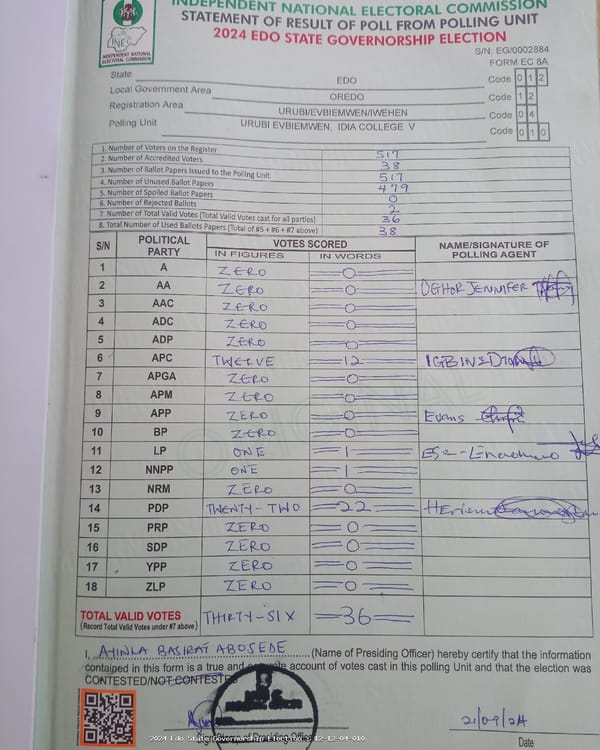 INDEPENDENT NATIONAL ELECTORAL COMMISSION
STATEMENT OF RESULT OF POLL FROM POLLING UNIT
2024 EDO STATE GOVERNORSHIP ELECTION
INEC
INDEPENDENT NATIONAL ELECTORAL COMMISSION
S/N: EG/0002884
FORM EC 8A
State EDO Code 0 1 2
Local Government Area OREDO Code 1 2
Registration Area URUBI/EVBIEMWEN/IWEHEN Code 0 4
Polling Unit URUBI EVBIEMWEN, IDIA COLLEGE V Code 0 1 0
1. Number of Voters on the Register 517
2. Number of Accredited Voters 38
3. Number of Ballot Papers Issued to the Polling Unit 517
4. Number of Unused Ballot Papers 479
5. Number of Spoiled Ballot Papers 0
6. Number of Rejected Ballots 2
7. Number of Total Valid Votes (Total Valid Votes cast for all parties) 36
8. Total Number of Used Ballots Papers (Total of #5 + #6 + #7 above) 38
S/N POLITICAL PARTY VOTES SCORED NAME/SIGNATURE OF POLLING AGENT
IN FIGURES IN WORDS
1 A ZERO 0
2 AA ZERO 0 OGHOR JENNIFER
3 AAC ZERO 0
4 ADC ZERO 0
5 ADP ZERO 0
6 APC TWELVE 12
7 APGA ZERO 0
8 APM ZERO 0
9 APP ZERO 0 Evans
10 BP ZERO 0
11 LP ONE 1
12 NNPP ONE 1
13 NRM ZERO 0
14 PDP TWENTY-TWO 22
15 PRP ZERO 0
16 SDP ZERO 0
17 YPP ZERO 0
18 ZLP ZERO 0
TOTAL VALID VOTES THIRTY-SIX 36
(Record Total Valid Votes under #7 above)
I, AYINLA BASIRAT ABOSEDE (Name of Presiding Officer) hereby certify that the information
contained in this form is a true and accurate account of votes cast in this polling Unit and that the election was
CONTESTED/NOT CONTESTED
21/09/24
Signature of Presiding Officer Date
2024 Edo State Governorship Election - 12-12-04-010